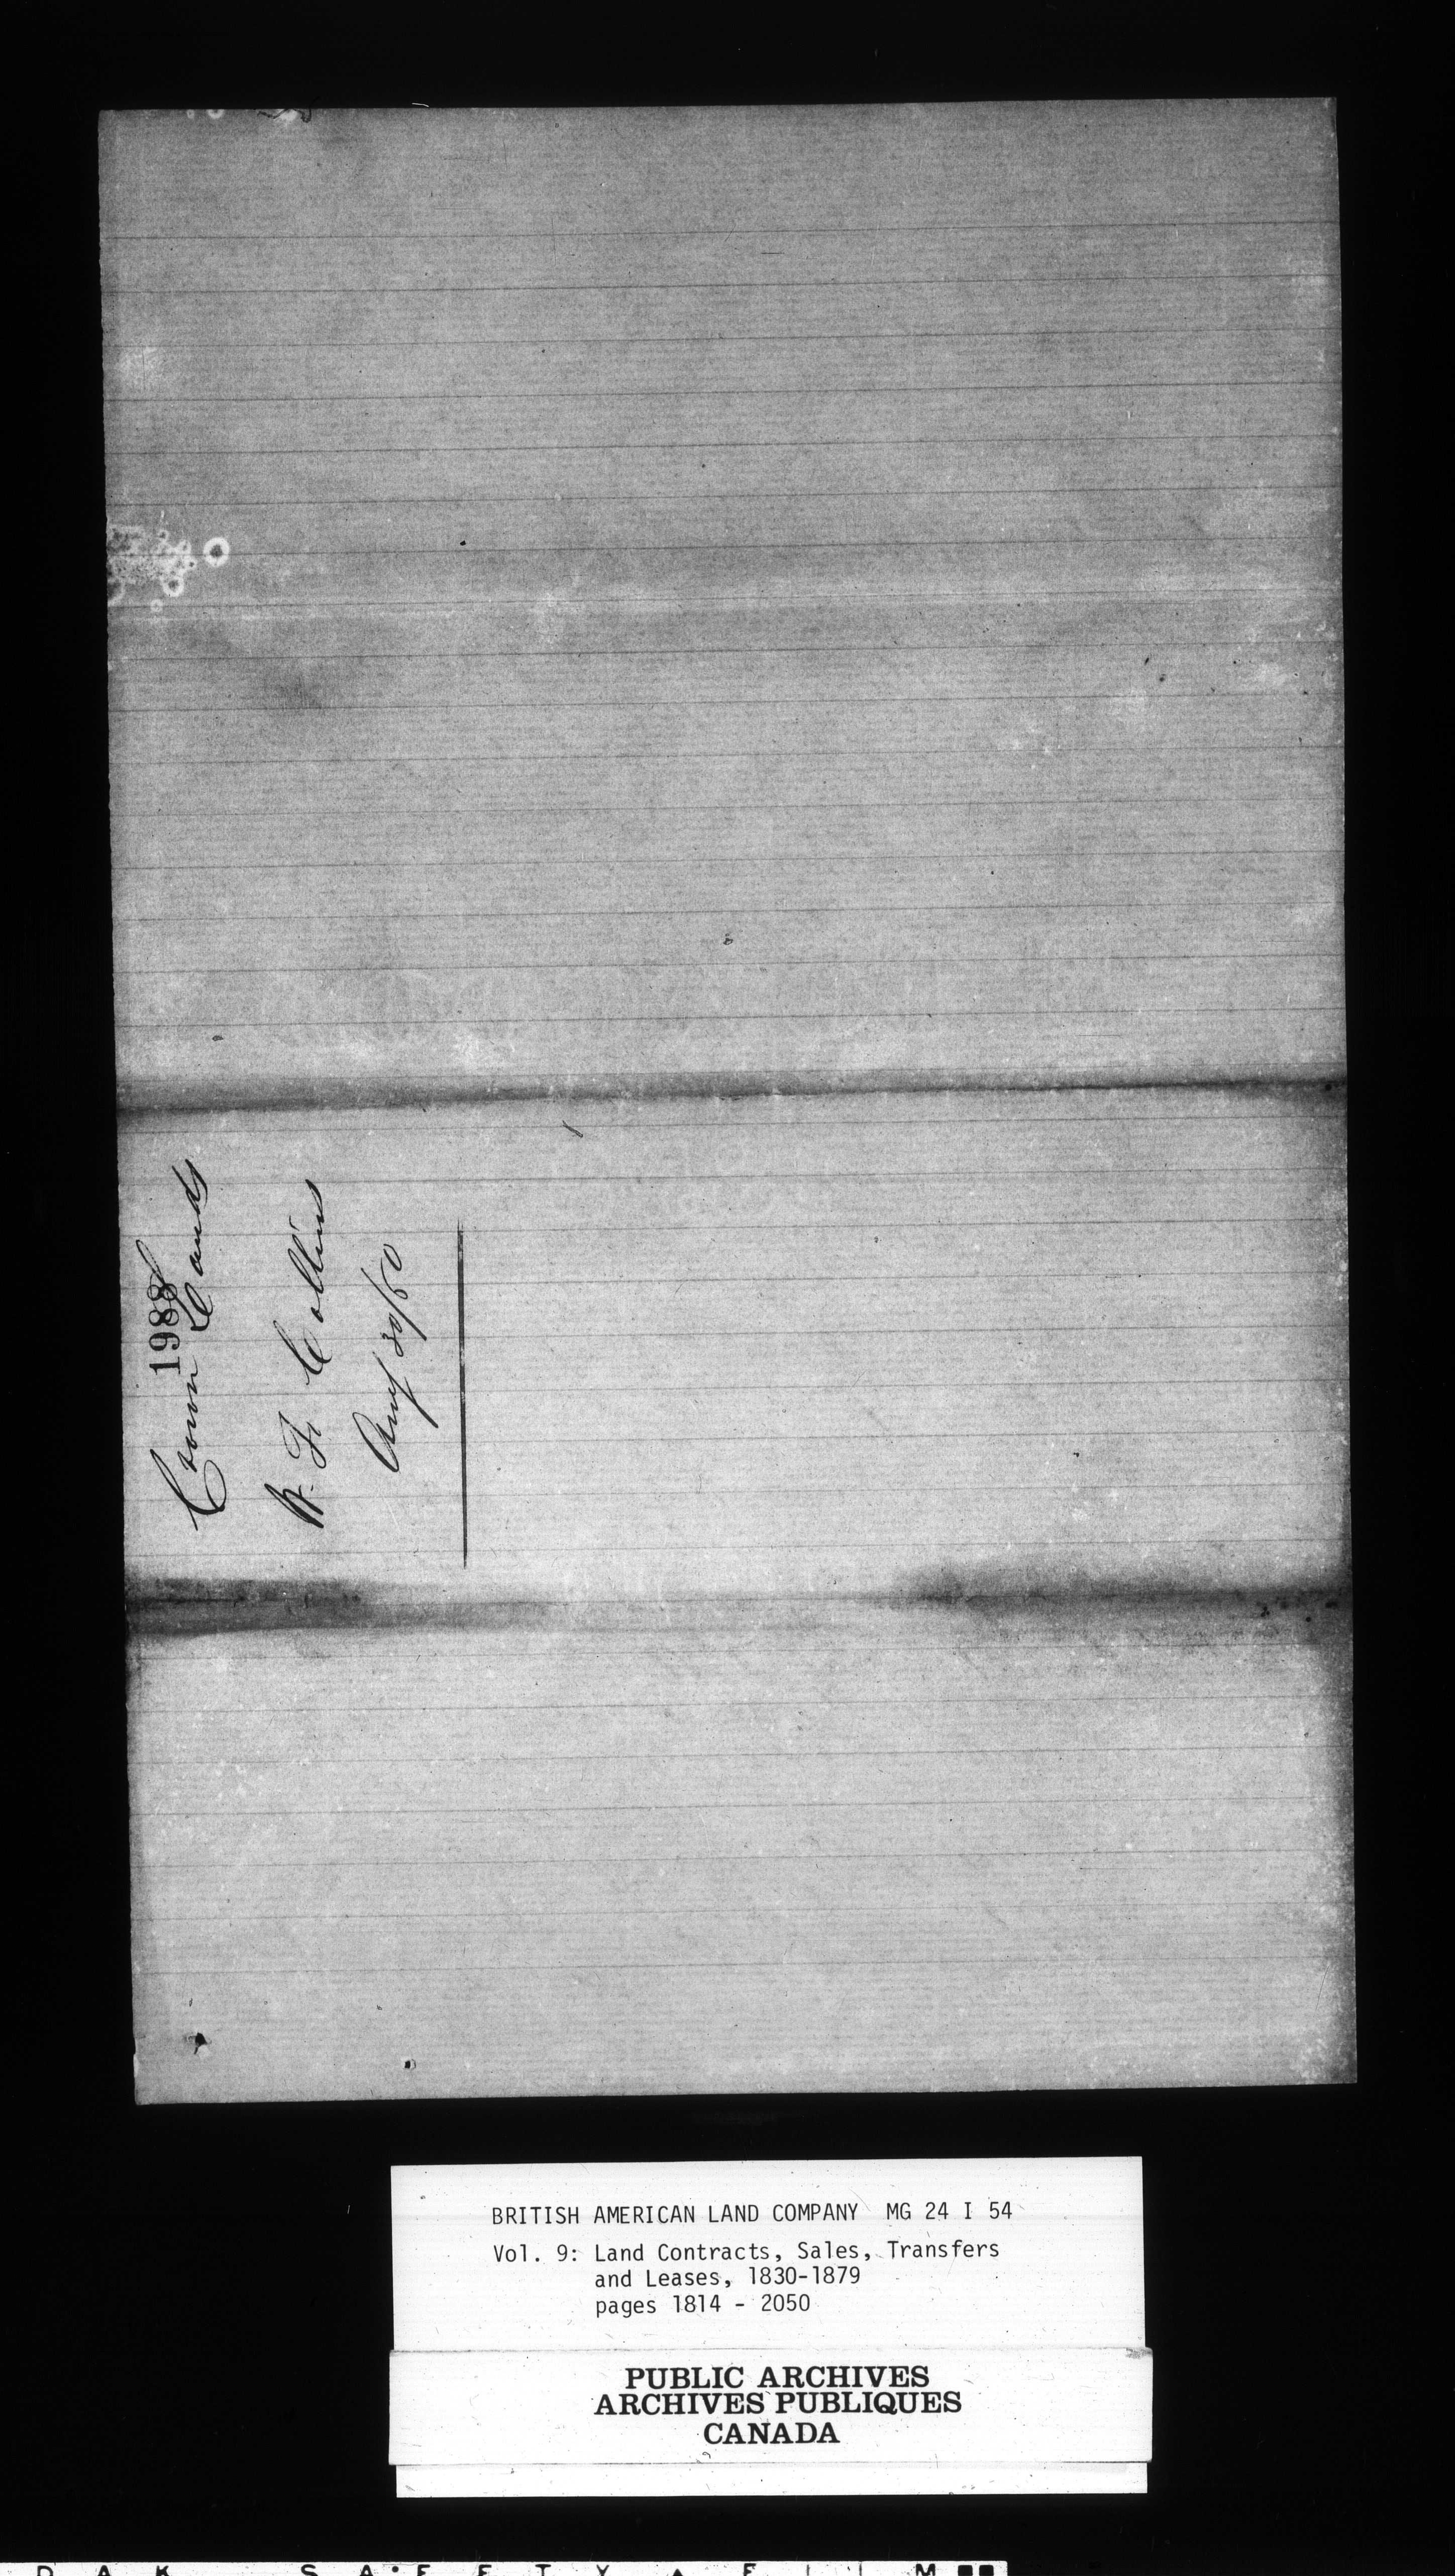 1988
Crown Lands
W. F. Collins
Aug 30/50
BRITISH AMERICAN LAND COMPANY MG 24 I 54
Vol. 9: Land Contracts, Sales, Transfers
and Leases, 1830-1879
pages 1814 - 2050
PUBLIC ARCHIVES
ARCHIVES PUBLIQUES
CANADA